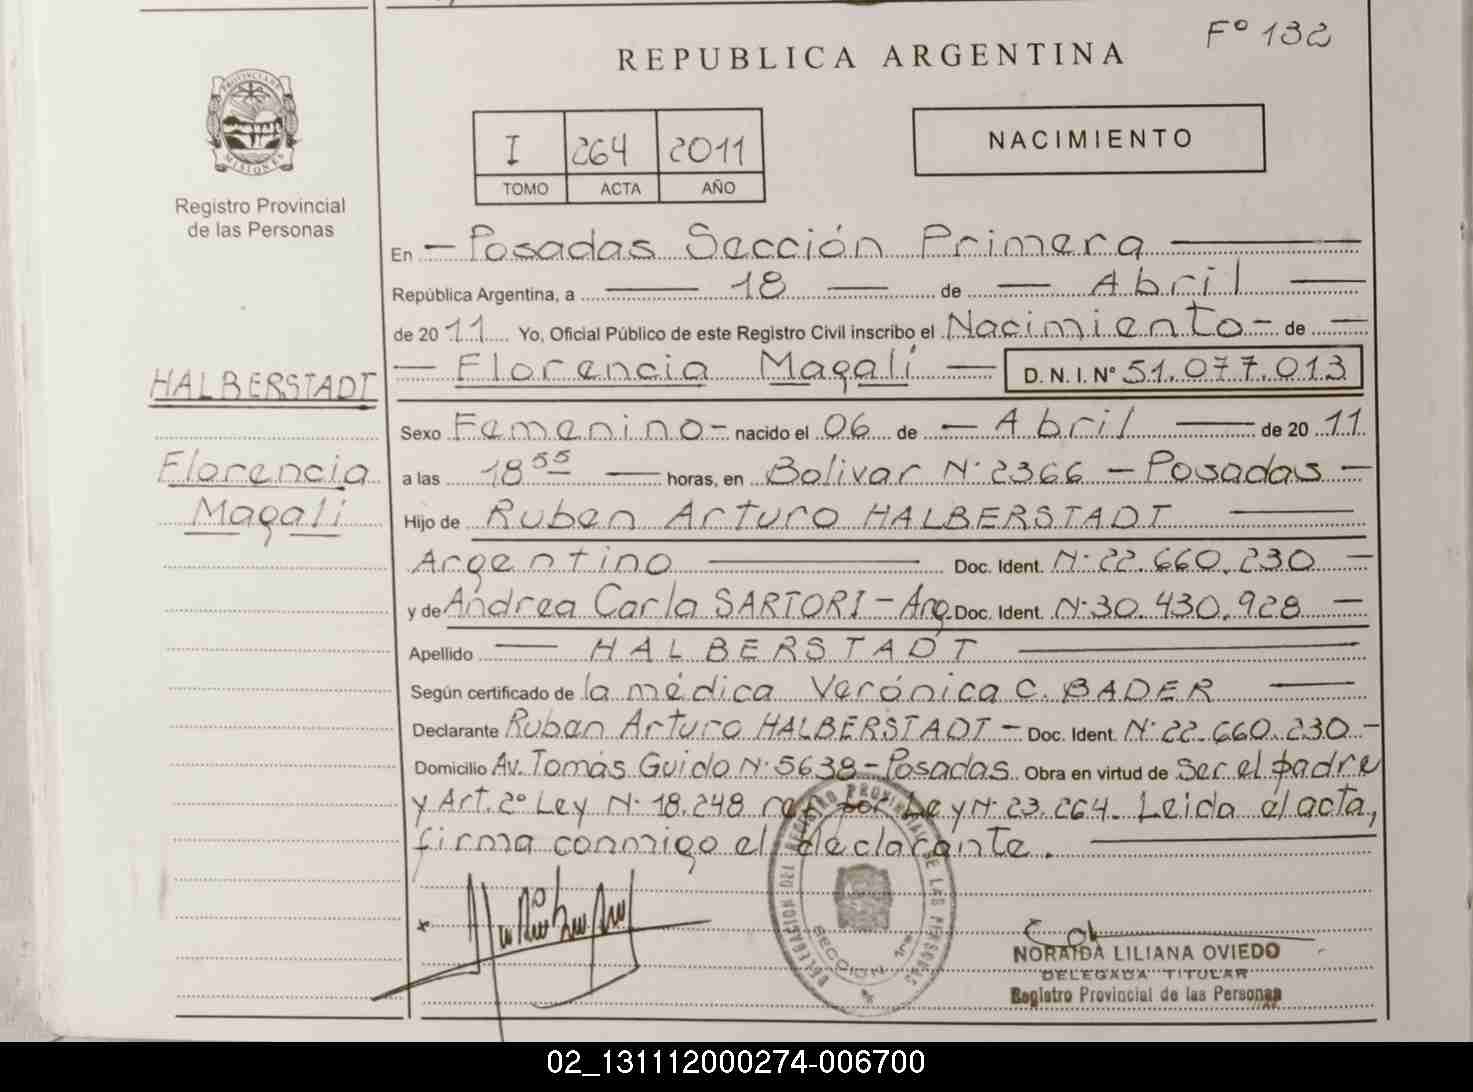 Fº 132
REPUBLICA ARGENTINA
PROVINCIA DE
MISIONES
Registro Provincial
de las Personas
I 264 2011
TOMO ACTA AÑO
NACIMIENTO
En - Posadas Sección Primera
República Argentina, a 18 de Abril
de 2011 Yo, Oficial Público de este Registro Civil inscribo el Nacimiento - de
Florencia Magalí D. N. I. Nº 51.077.013
HALBERSTADT
Florencia
Magalí
Sexo Femenino - nacido el 06 de Abril de 2011
a las 18 55 horas, en Bolivar Nº 2366 - Posadas -
Hijo de Ruben Arturo HALBERSTADT
Argentino Doc. Ident. Nº 22.660.230 -
y de Andrea Carla SARTORI - Arg. Doc. Ident. Nº 30.430.928 -
Apellido HALBERSTADT
Según certificado de la médica Verónica C. BADER
Declarante Ruben Arturo HALBERSTADT - Doc. Ident. Nº 22.660.230 -
Domicilio Av. Tomás Guido Nº 5638 - Posadas. Obra en virtud de Ser el padre
y Art. 2º Ley Nº 18.248 por Ley Nº 23.264. Leida el acta,
firma conmigo el declarante.
DELEGACION DEL REGISTRO PROVINCIAL DE LAS PERSONAS
SECCION 1ra
NORAIDA LILIANA OVIEDO
DELEGADA TITULAR
Registro Provincial de las Personas
02_131112000274-006700